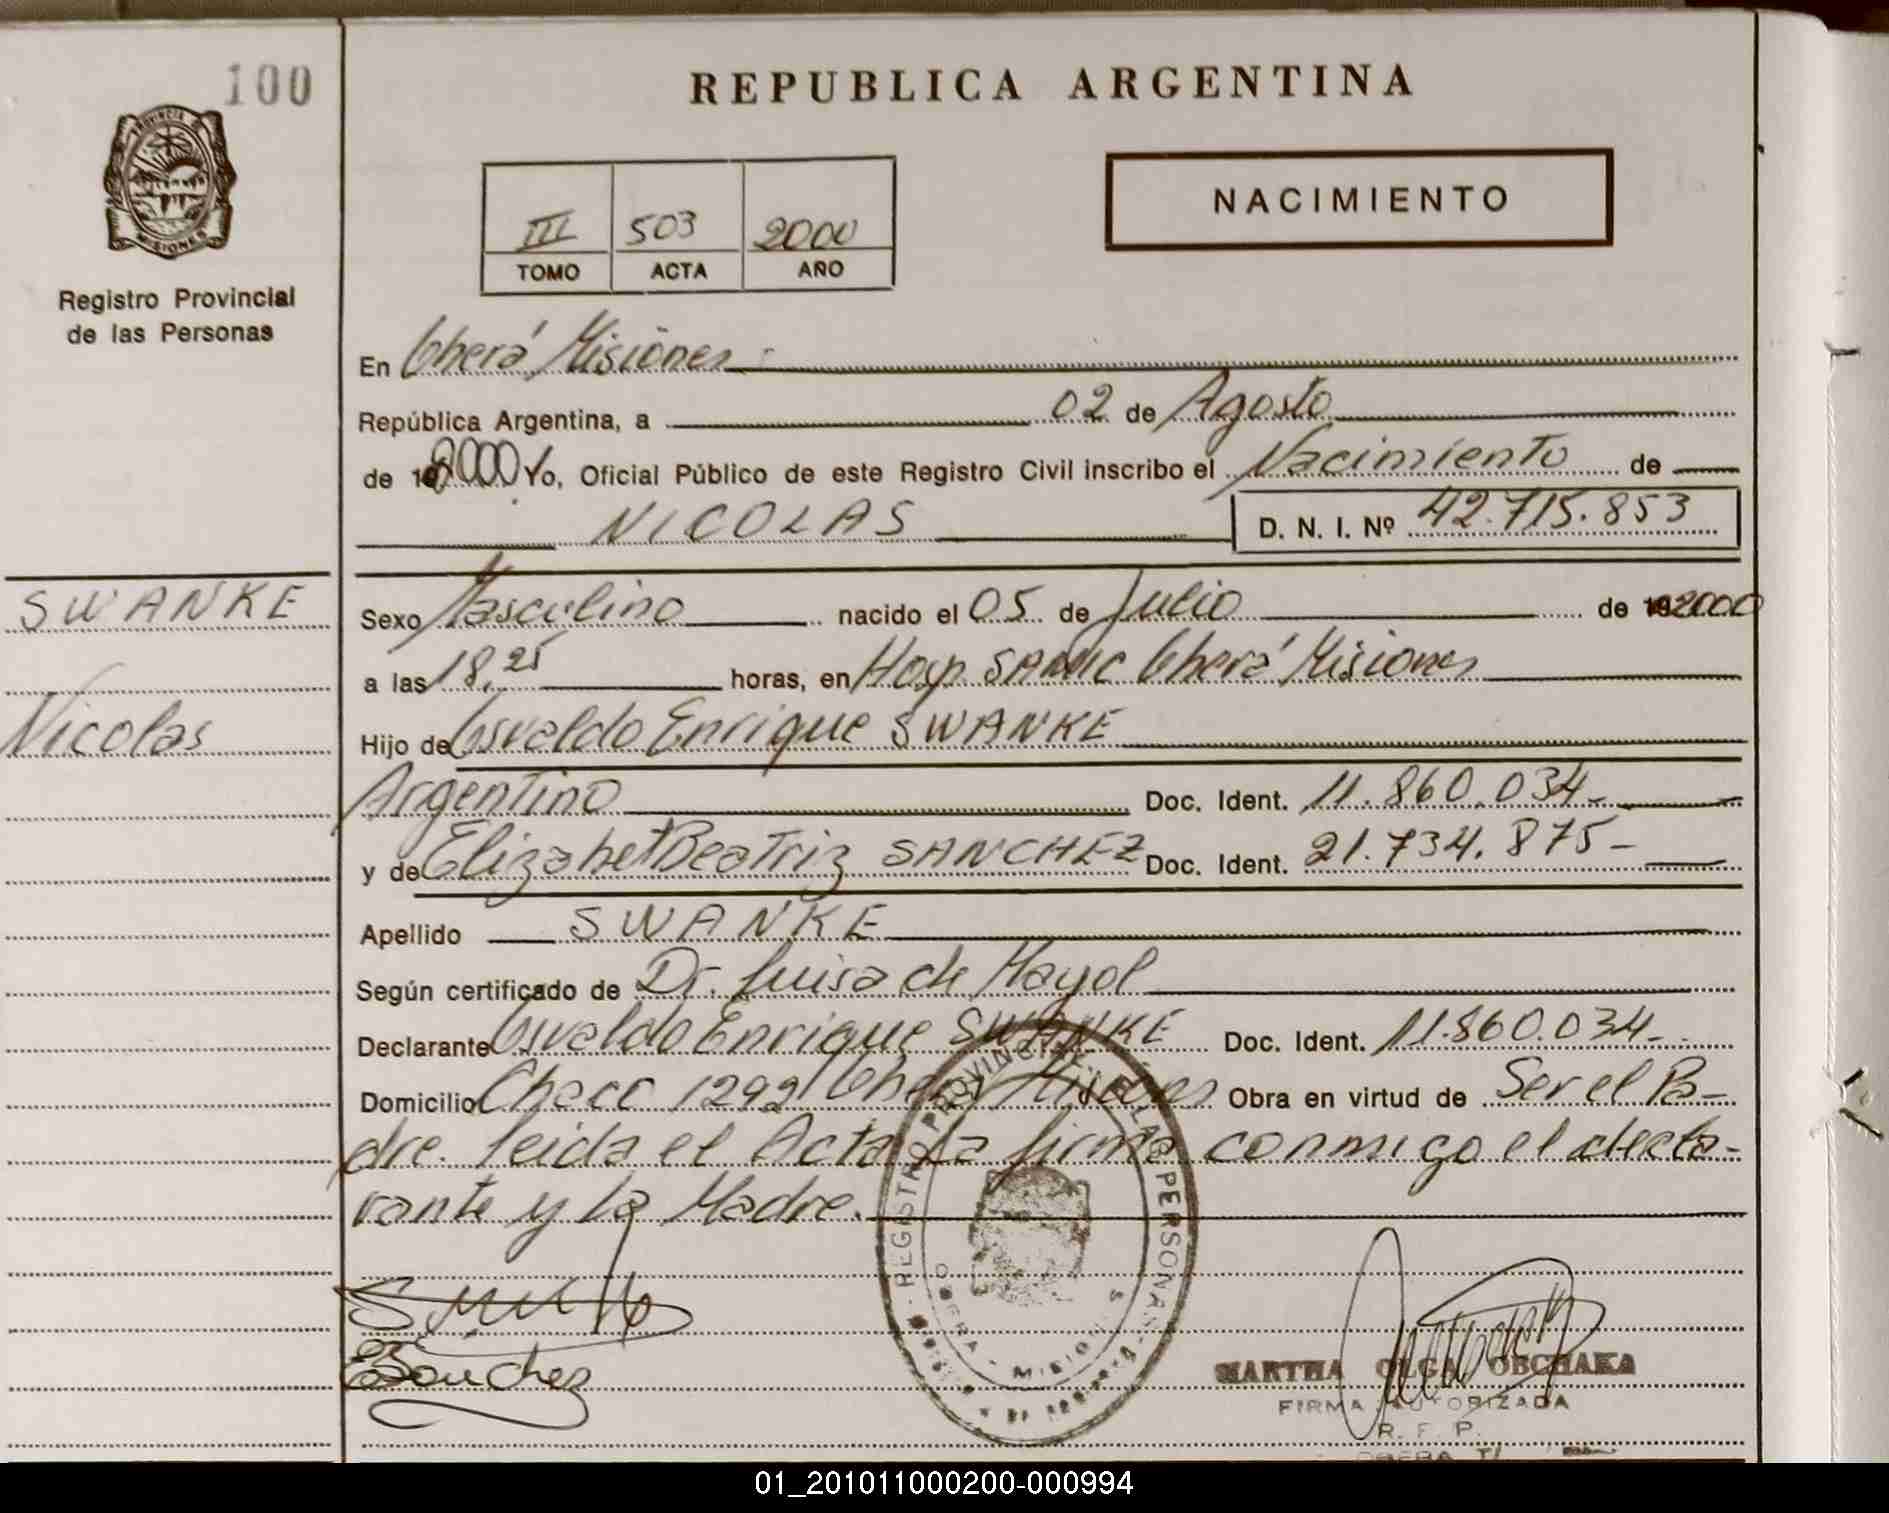 100
REPUBLICA ARGENTINA
PROVINCIA DE
MISIONES
Registro Provincial
de las Personas
NACIMIENTO
III 503 2000
TOMO ACTA AÑO
En Oberá Misiones
República Argentina, a 02 de Agosto
de 2000 Yo, Oficial Público de este Registro Civil inscribo el Nacimiento de
NICOLAS D. N. I. Nº 42.715.853
SWANKE
Nicolas
Sexo Masculino nacido el 05 de Julio de 2000
a las 18,25 horas, en Hosp SAMIC Oberá Misiones
Hijo de Osvaldo Enrique SWANKE
Argentino Doc. Ident. 11.860.034-
y de Elizabet Beatriz SANCHEZ Doc. Ident. 21.734.875-
Apellido SWANKE
Según certificado de Dr. Luisa de Mayol
Declarante Osvaldo Enrique SWANKE Doc. Ident. 11.860.034-
Domicilio Chaco 1292 Oberá Misiones Obra en virtud de Ser el Pa-
dre. leida el Acta la firma conmigo el decla-
rante y la Madre.
REGISTRO PROVINCIAL DE LAS PERSONAS
OBERA - MISIONES
ESanchez
MARTHA OLGA OBCHAKA
FIRMA AUTORIZADA
R. P. P.
01_201011000200-000994